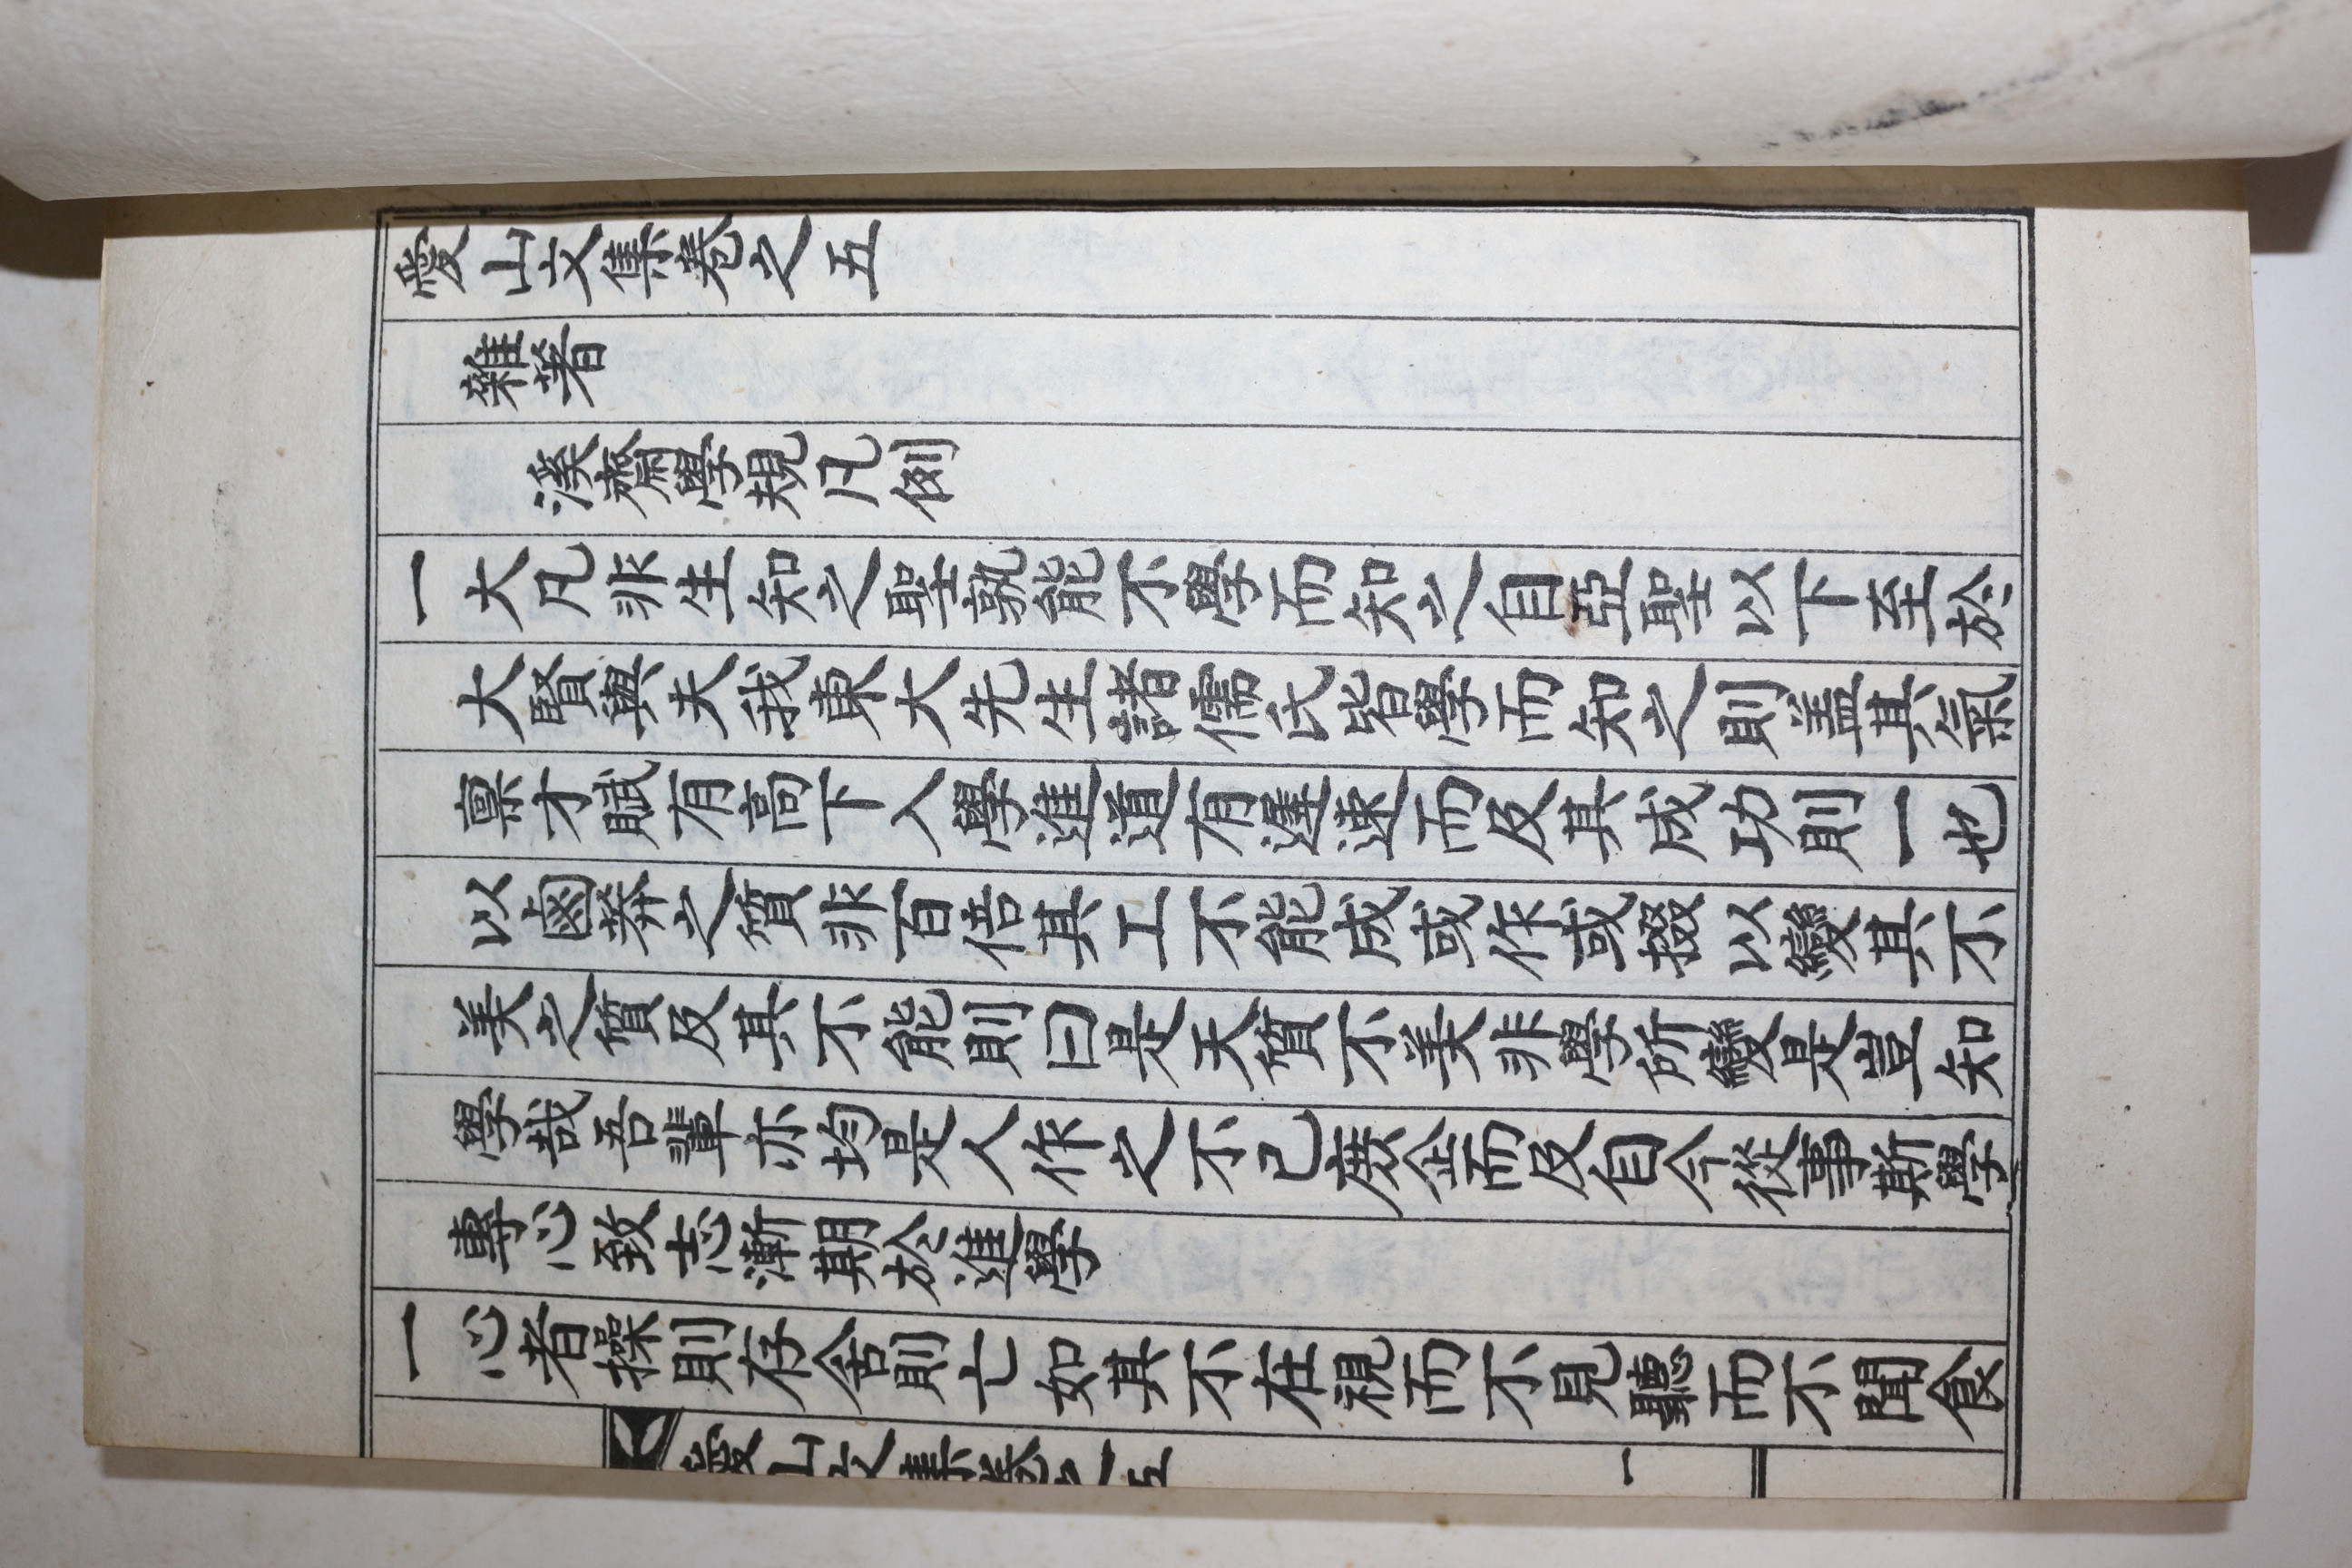 愛山文集卷之五
雜著
溪齋學規凡例
一大凡非生知之聖孰能不學而知之自亞聖以下至於
大賢與夫我東大先生諸儒氏皆學而知之則盖其氣
禀才賦有高下入學進道有遲速而及其成功則一也
以鹵莽之質非百倍其工不能成或作或掇以變其不
美之質及其不能則曰是天質不美非學所變是豈知
學哉吾輩亦均是人作之不已庶企而及自今從事斯學
專心致志漸期於進學
一心者操則存舍則亡如其不在視而不見聽而不聞食
愛山文集卷之五
一